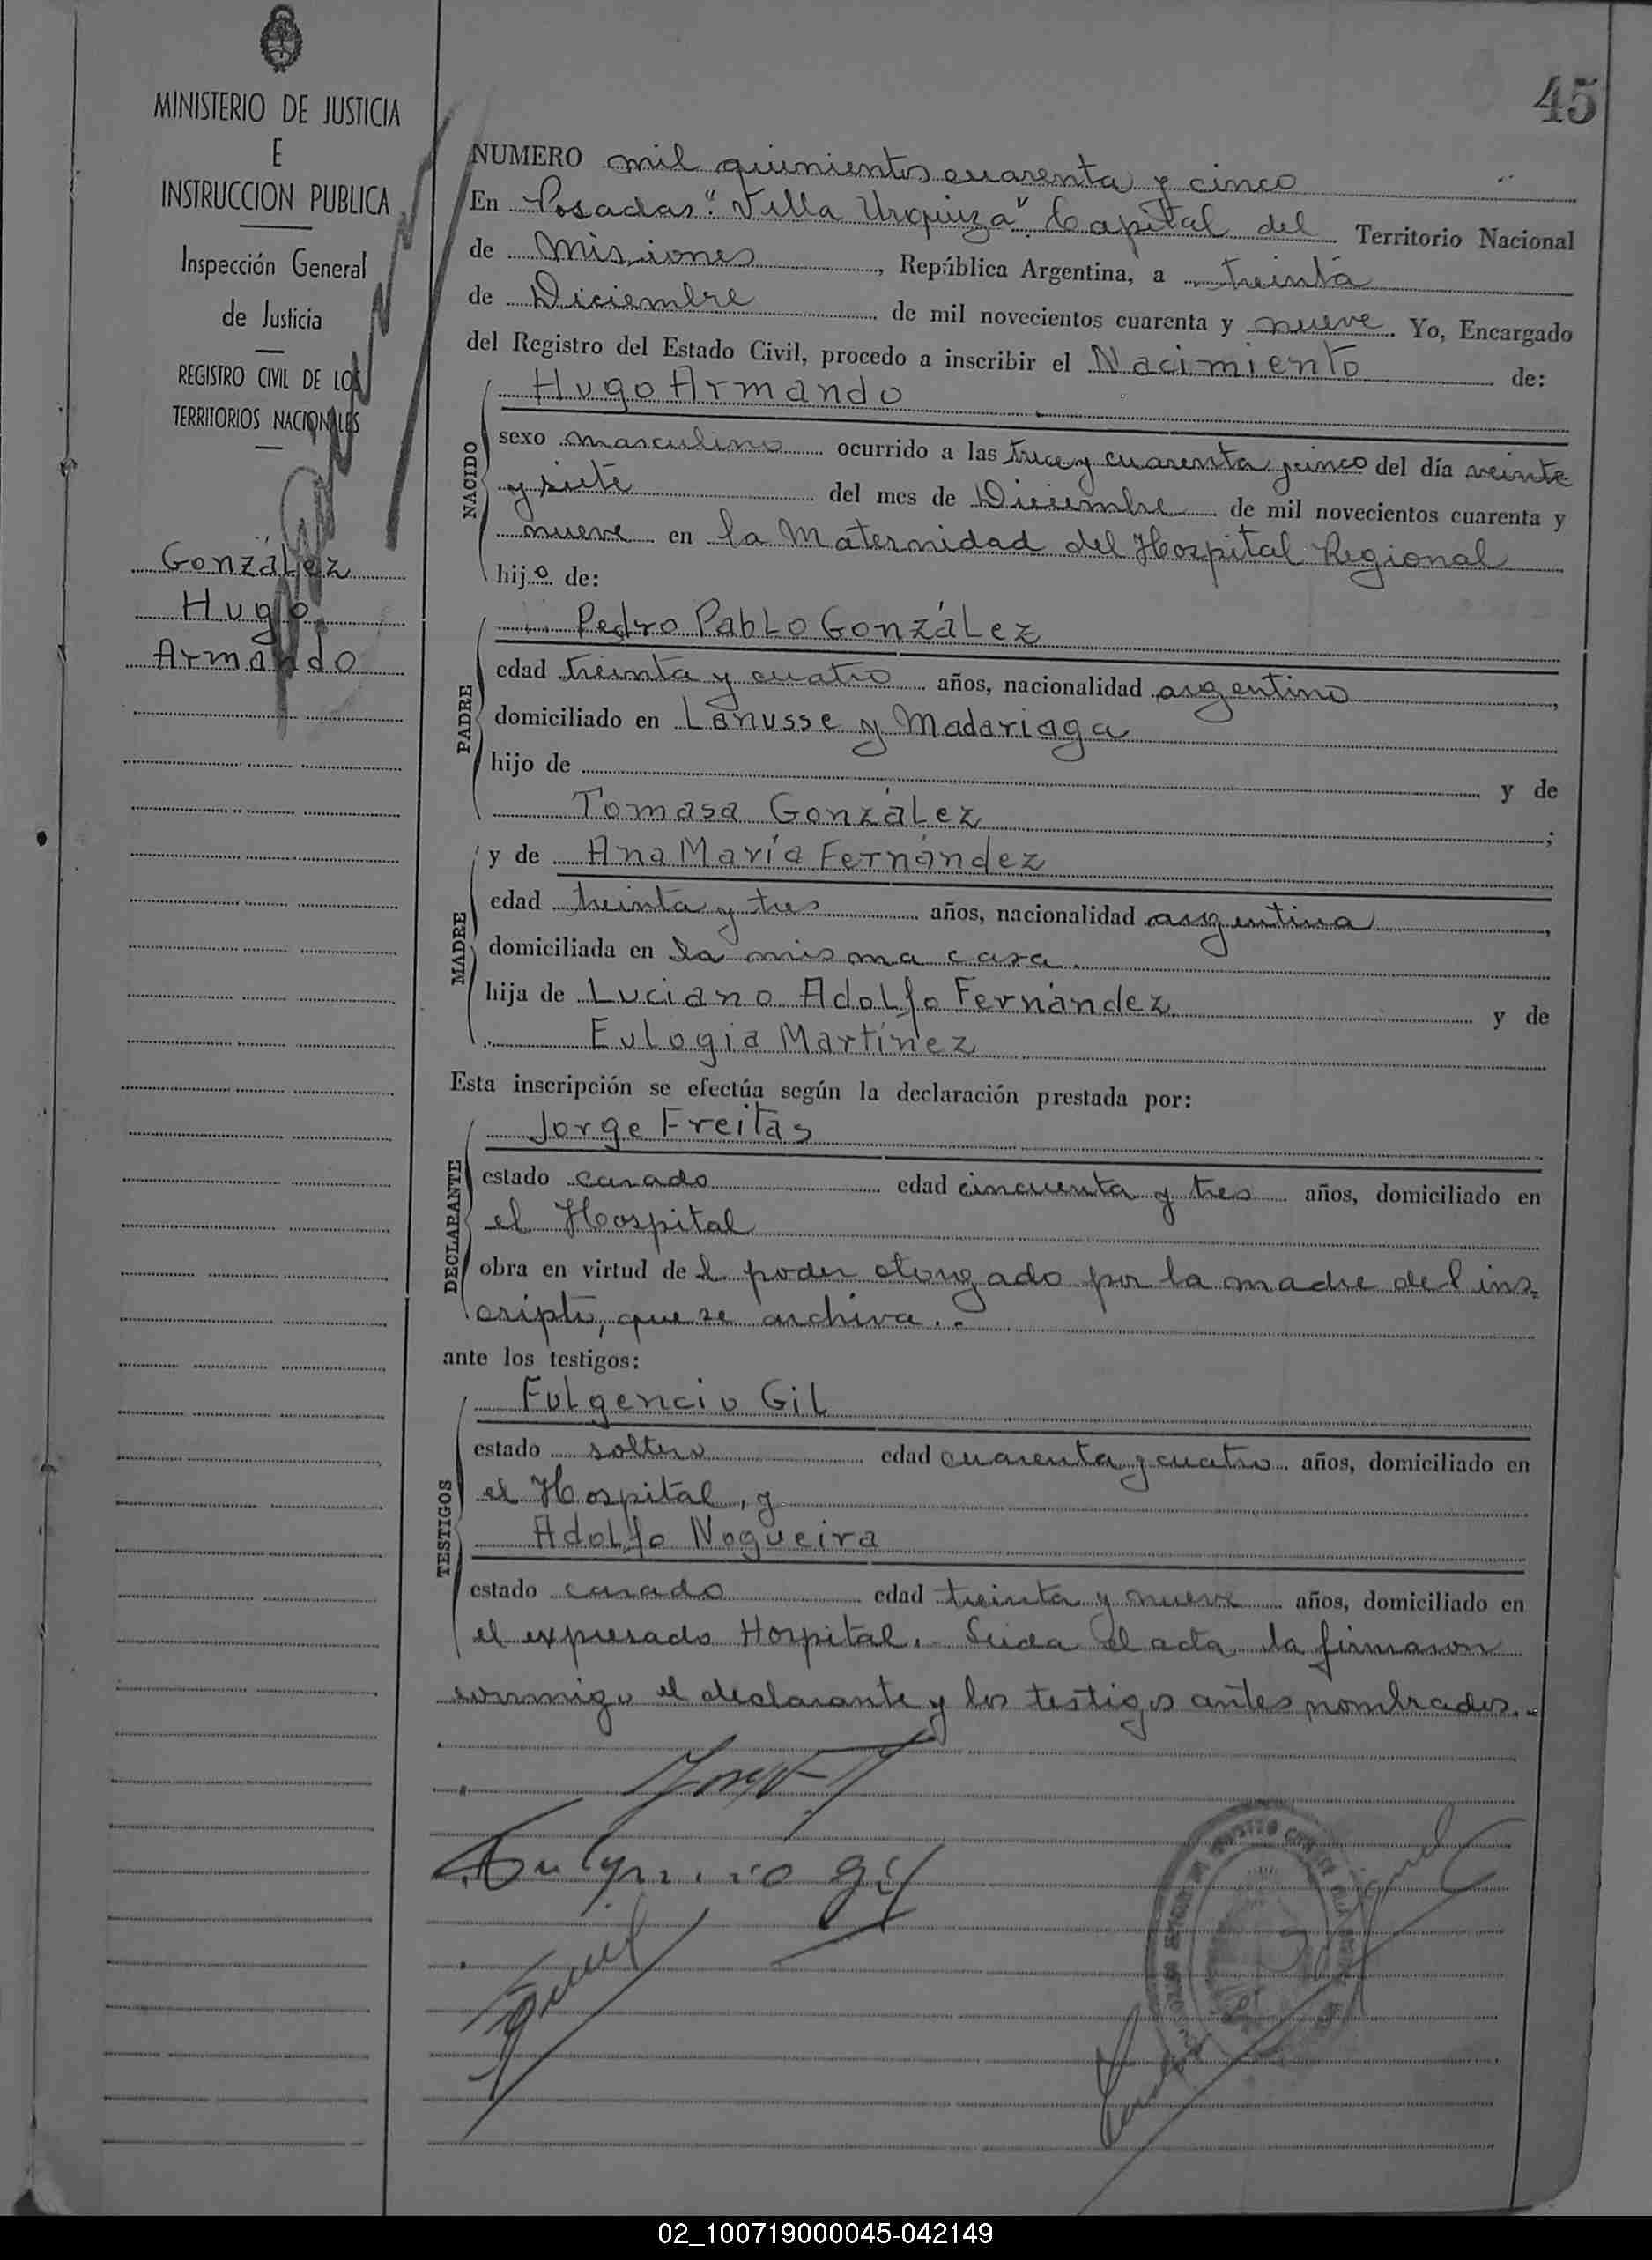 MINISTERIO DE JUSTICIA
E
INSTRUCCION PUBLICA
Inspección General
de Justicia
REGISTRO CIVIL DE LOS
TERRITORIOS NACIONALES
González
Hugo
Armando
45
NUMERO mil quinientos cuarenta y cinco
En Posadas "Villa Urquiza" Capital del Territorio Nacional
de Misiones, República Argentina, a treinta
de Diciembre de mil novecientos cuarenta y nueve. Yo, Encargado
del Registro del Estado Civil, procedo a inscribir el Nacimiento de:
NACIDO
Hugo Armando
sexo masculino ocurrido a las trece y cuarenta y cinco del día veinte
y siete del mes de Diciembre de mil novecientos cuarenta y
nueve en la Maternidad del Hospital Regional
hijo de:
PADRE
Pedro Pablo González
edad treinta y cuatro años, nacionalidad argentino,
domiciliado en Lanusse y Madariaga
hijo de y de
Tomasa González;
MADRE
y de Ana María Fernández
edad treinta y tres años, nacionalidad argentina,
domiciliada en la misma casa.
hija de Luciano Adolfo Fernández y de
Eulogia Martínez
Esta inscripción se efectúa según la declaración prestada por:
DECLARANTE
Jorge Freitas
estado casado edad cincuenta y tres años, domiciliado en
el Hospital
obra en virtud del poder otorgado por la madre del ins-
cripto, que se archiva.-
ante los testigos:
TESTIGOS
Fulgencio Gil
estado soltero edad cuarenta y cuatro años, domiciliado en
el Hospital, y
Adolfo Nogueira
estado casado edad treinta y nueve años, domiciliado en
el expresado Hospital. Leida el acta la firmaron
conmigo el declarante y los testigos antes nombrados.-
Fulgencio Gil
02_100719000045-042149